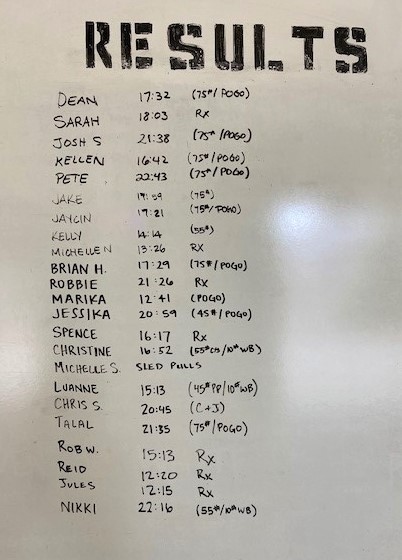 RESULTS
DEAN 17:32 (75#/POGO)
SARAH 18:03 Rx
JOSH S 21:38 (75#/POGO)
KELLEN 16:42 (75#/POGO)
PETE 22:43 (75#/POGO)
JAKE 17:59 (75#)
JAYCIN 17:21 (75#/POGO)
KELLY 14:14 (55#)
MICHELLE N 13:26 RX
BRIAN H. 17:29 (75#/POGO)
ROBBIE 21:26 Rx
MARIKA 12:41 (POGO)
JESSIKA 20:59 (45#/POGO)
SPENCE 16:17 Rx
CHRISTINE 16:52 (55#/10#WB)
MICHELLE S. SLED PULLS
LUANNE 15:13 (45#PP/10#WB)
CHRIS S. 20:45 (C+J)
TALAL 21:35 (75#/POGO)
ROB W. 15:13 Rx
REID 12:20 Rx
JULES 12:15 Rx
NIKKI 22:16 (55#/10#WB)